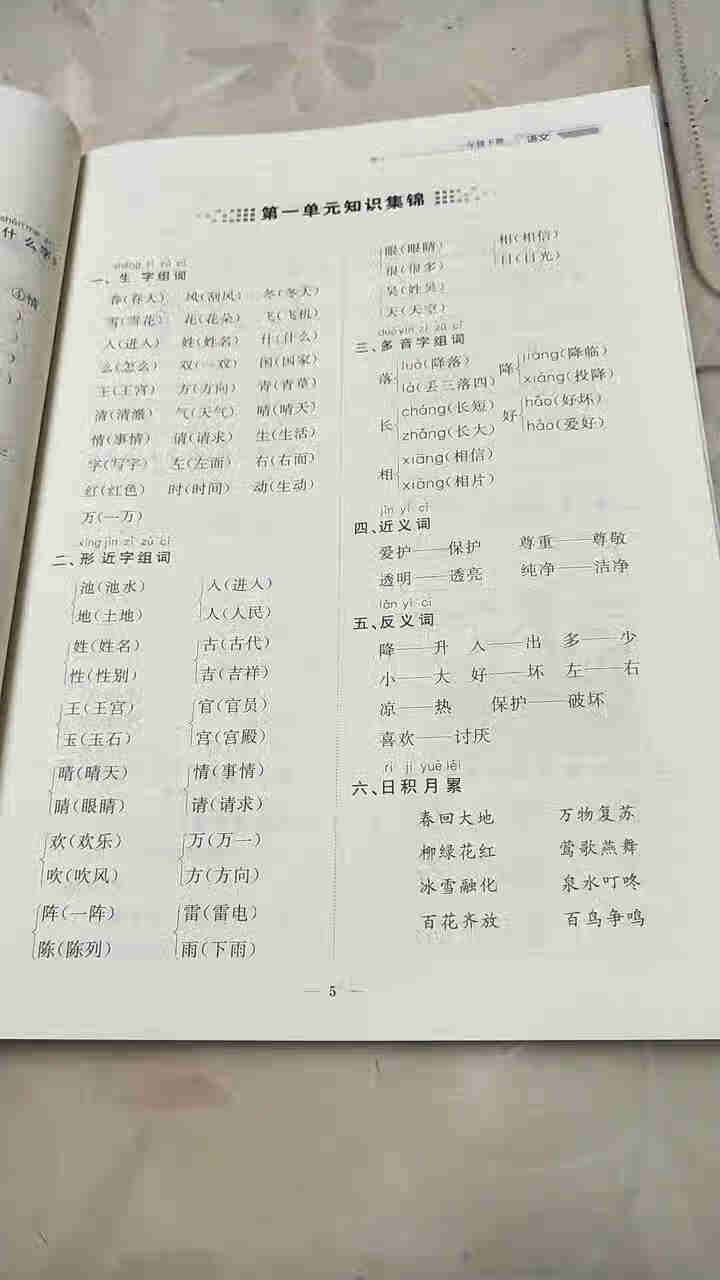 shén me
什么字
④情
年级下册 语文
第一单元知识集锦
shēng zì zǔ cí
一、生字组词
春(春天) 风(刮风) 冬(冬天)
雪(雪花) 花(花朵) 飞(飞机)
入(进入) 姓(姓名) 什(什么)
么(怎么) 双(一双) 国(国家)
王(王宫) 方(方向) 青(青草)
清(清澈) 气(天气) 晴(晴天)
情(事情) 请(请求) 生(生活)
字(写字) 左(左面) 右(右面)
红(红色) 时(时间) 动(生动)
万(一万)
xíng jìn zì zǔ cí
二、形近字组词
池(池水) 入(进入)
地(土地) 人(人民)
姓(姓名) 古(古代)
性(性别) 吉(吉祥)
王(王宫) 官(官员)
玉(玉石) 宫(宫殿)
晴(晴天) 情(事情)
睛(眼睛) 请(请求)
欢(欢乐) 万(万一)
吹(吹风) 方(方向)
阵(一阵) 雷(雷电)
陈(陈列) 雨(下雨)
眼(眼睛) 相(相信)
很(很多) 目(目光)
吴(姓吴)
天(天空)
duō yīn zì zǔ cí
三、多音字组词
落 luò(降落) 降 jiàng(降临)
là(丢三落四) xiáng(投降)
长 cháng(长短) 好 hǎo(好坏)
zhǎng(长大) hào(爱好)
相 xiāng(相信)
xiàng(相片)
jìn yì cí
四、近义词
爱护——保护 尊重——尊敬
透明——透亮 纯净——洁净
fǎn yì cí
五、反义词
降——升 入——出 多——少
小——大 好——坏 左——右
凉——热 保护——破坏
喜欢——讨厌
rì jī yuè lěi
六、日积月累
春回大地 万物复苏
柳绿花红 莺歌燕舞
冰雪融化 泉水叮咚
百花齐放 百鸟争鸣
— 5 —